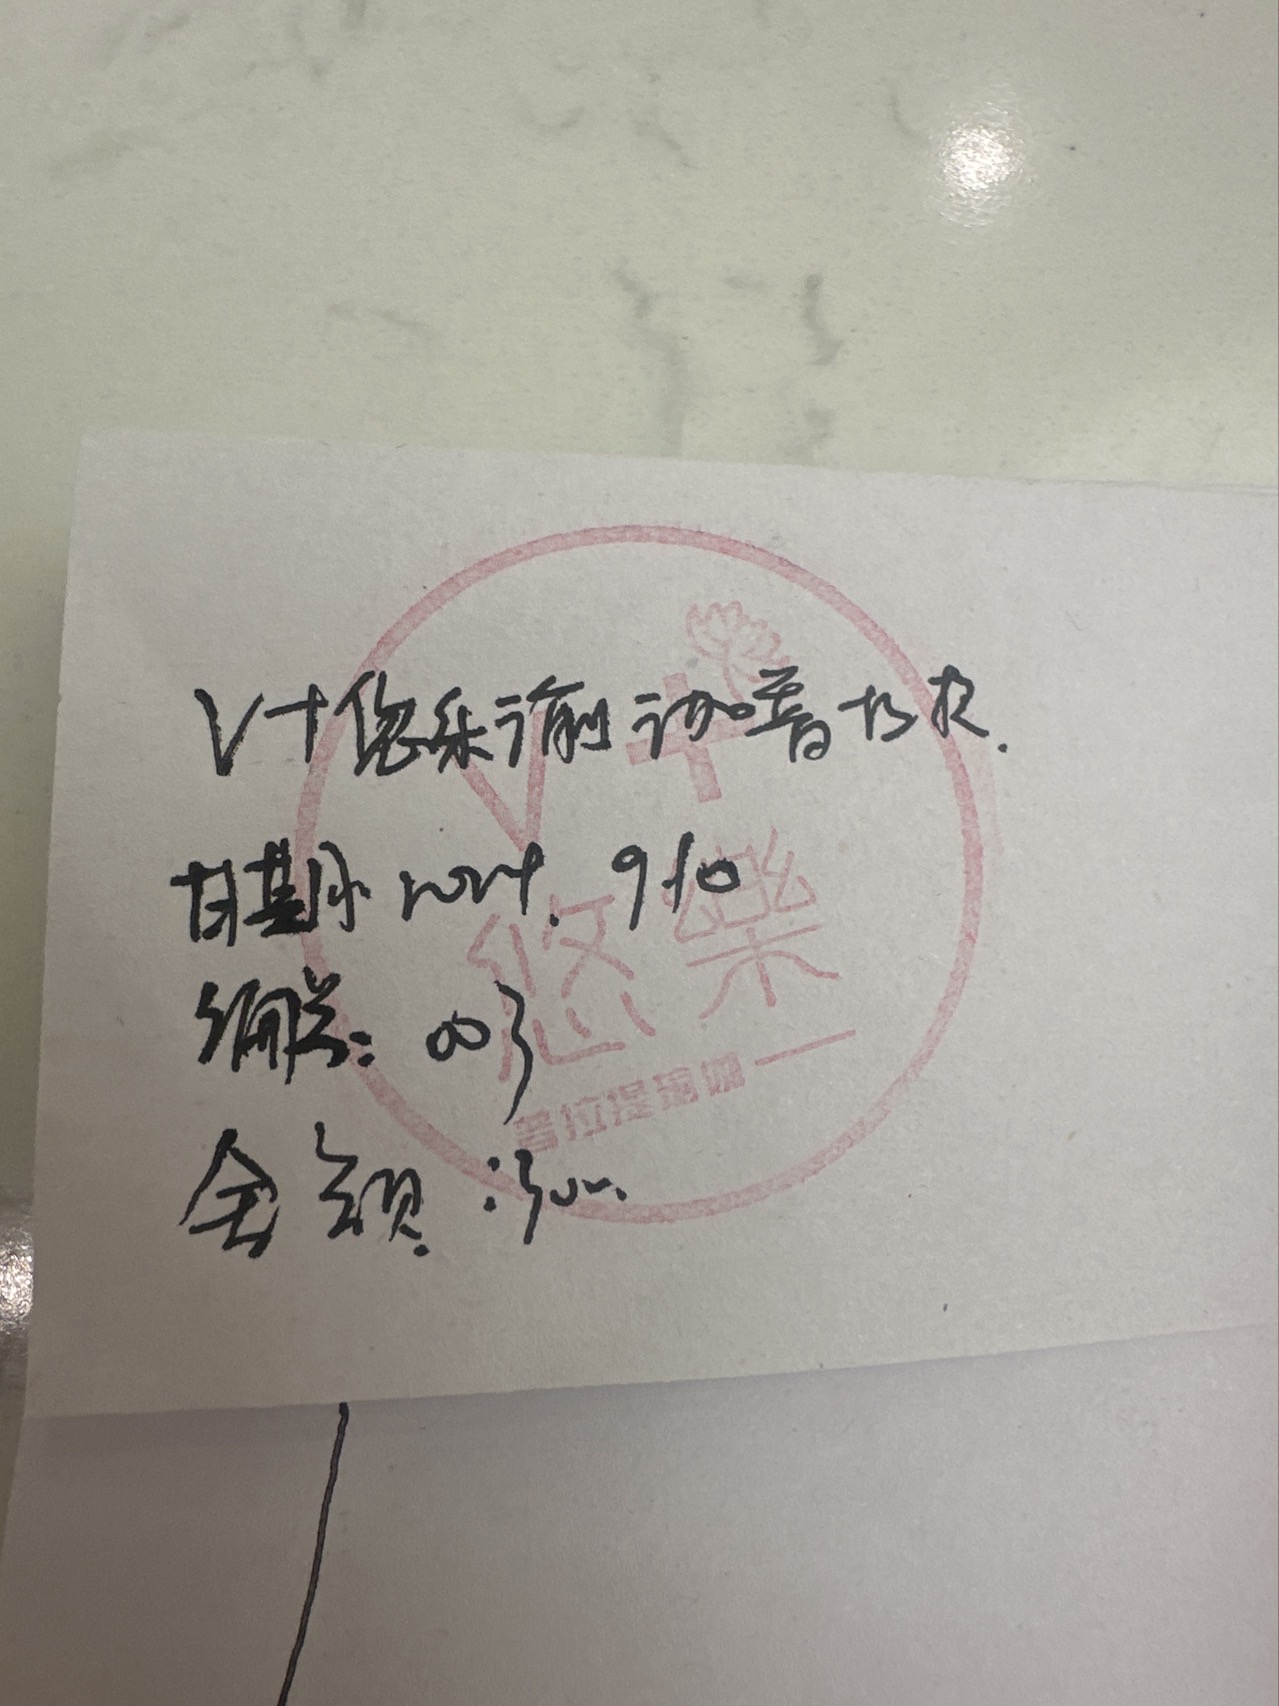 V+悠乐瑜珈普拉提
日期 2024. 9.10
编号: 003
金额: 300
V+
悠樂
普拉提瑜伽